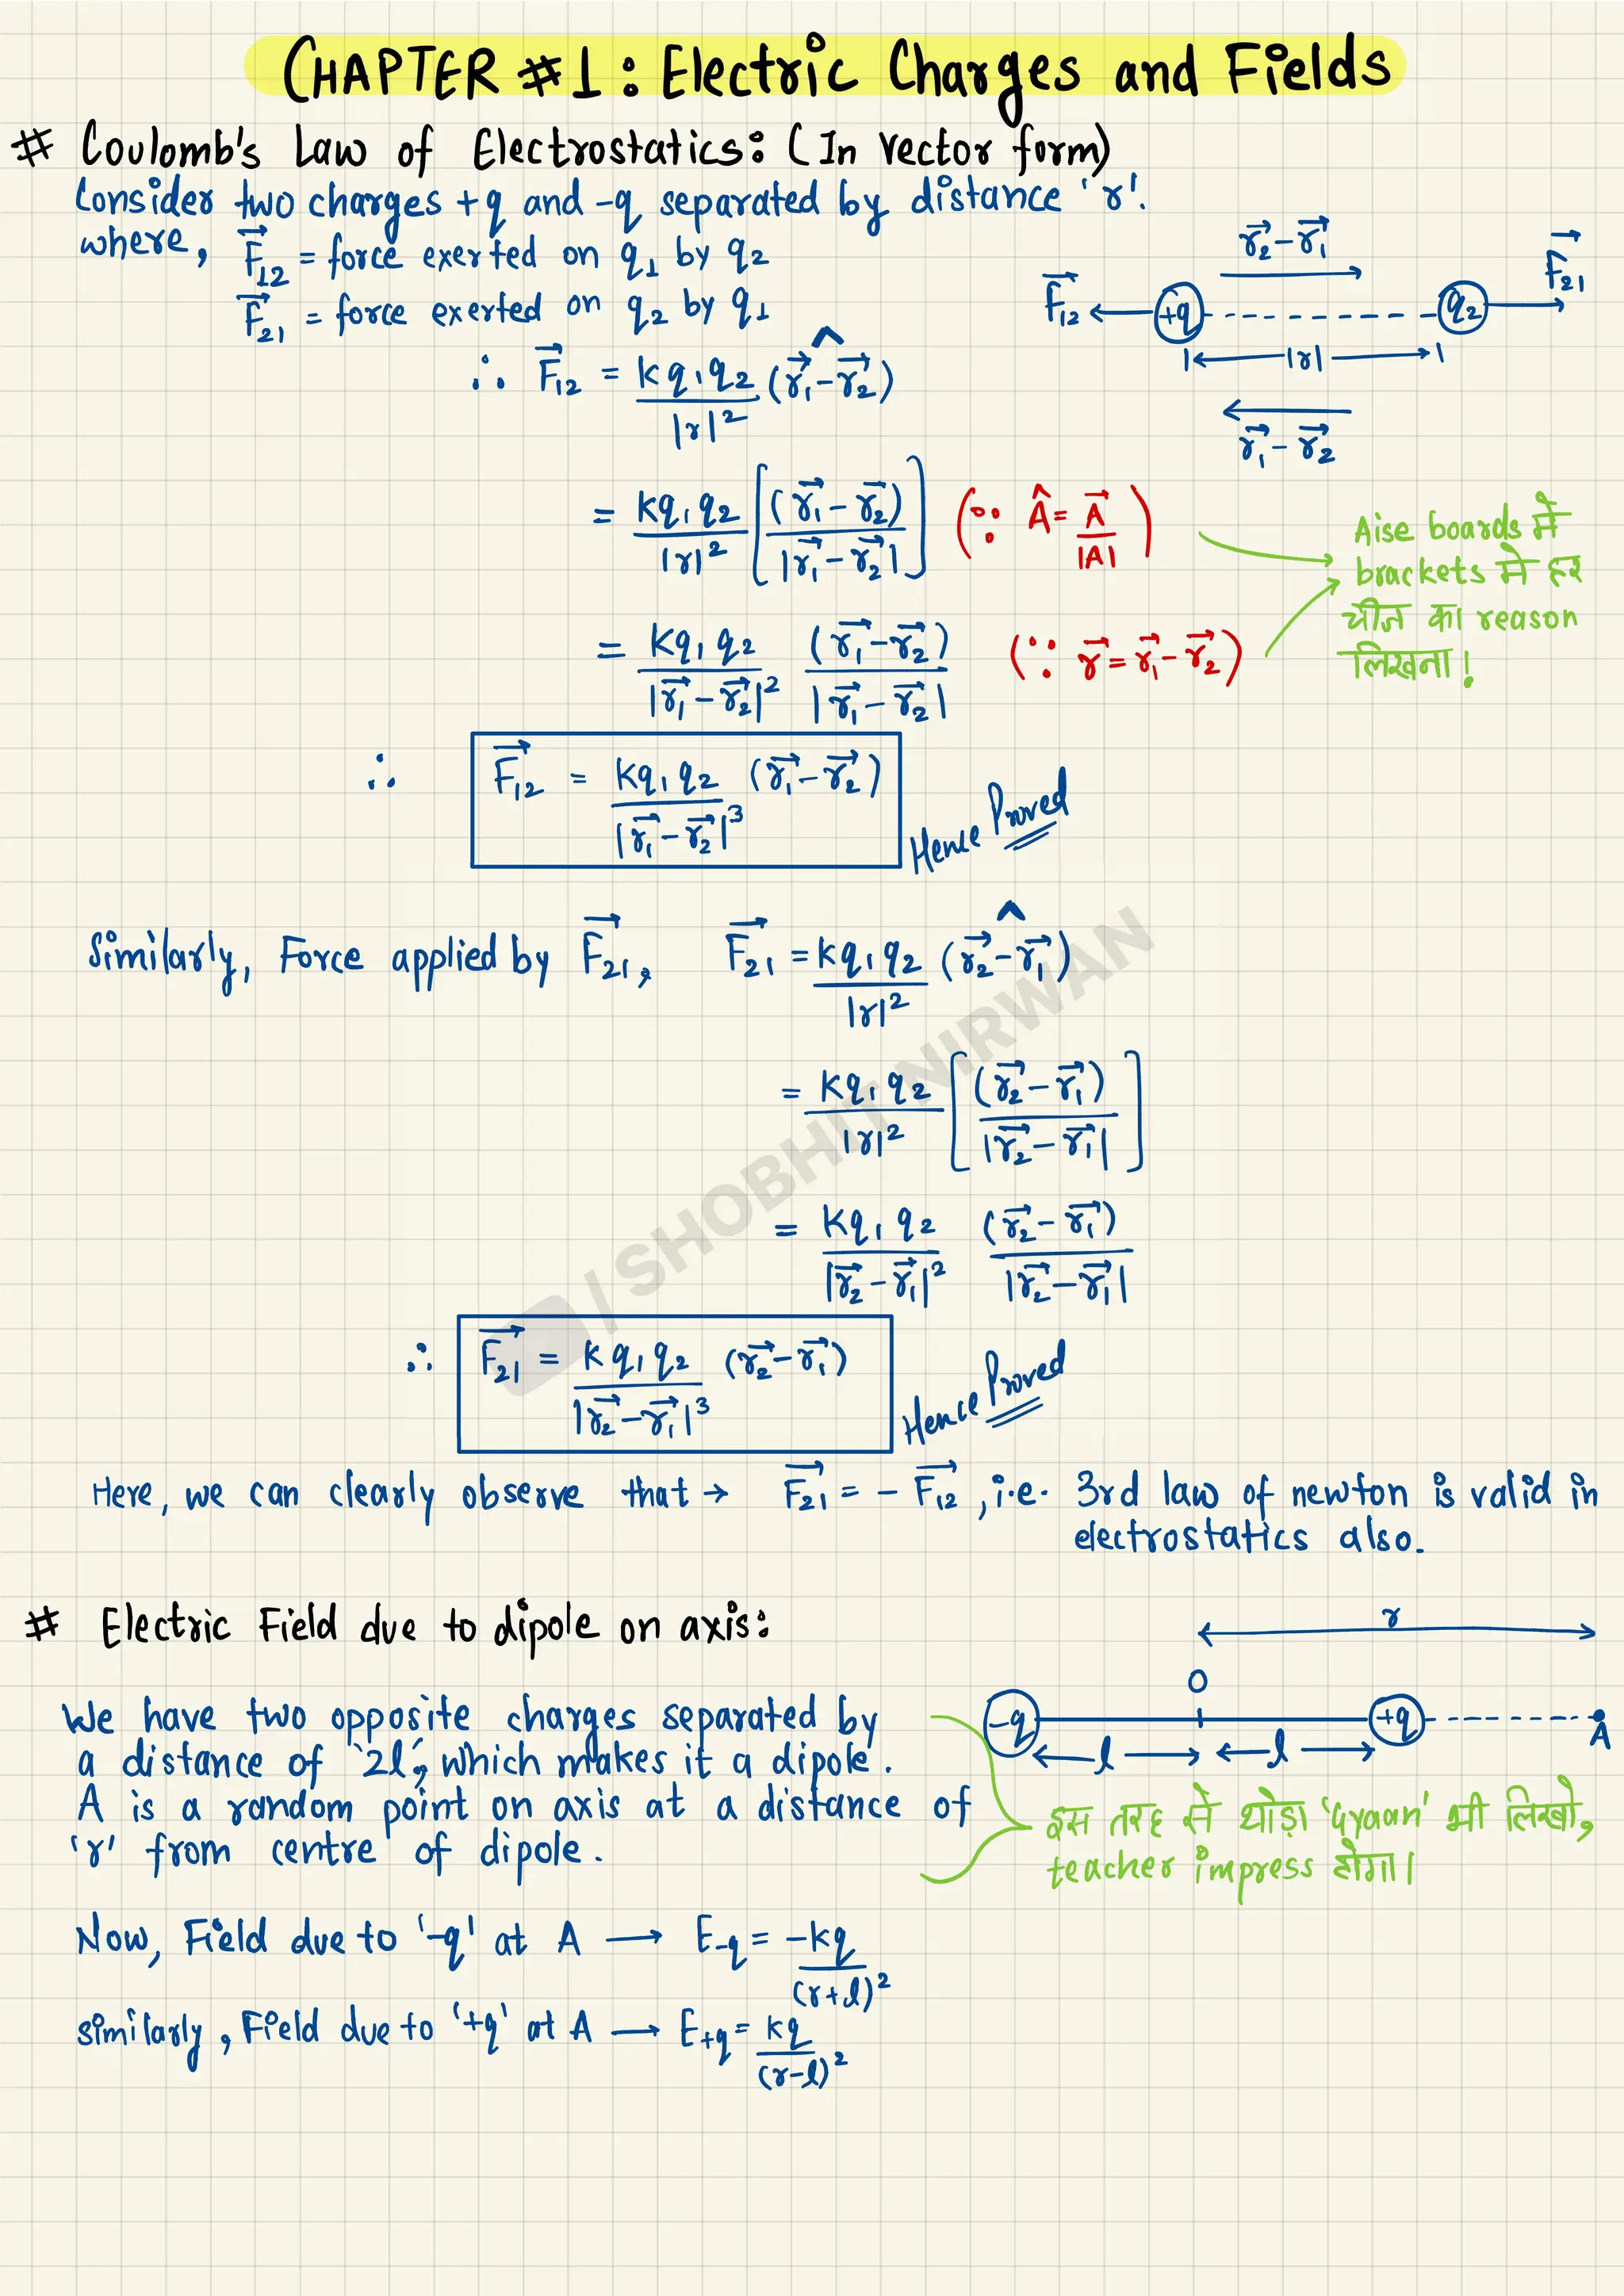 CHAPTER #1: Electric Charges and Fields
# Coulomb's Law of Electrostatics: (In vector form)
Consider two charges +q and -q separated by distance 'r'.
where, F⃗₁₂ = force exerted on q₁ by q₂
F⃗₂₁ = force exerted on q₂ by q₁
r⃗₂-r⃗₁
F⃗₁₂ +q q₂ F⃗₂₁
|r|
r⃗₁-r⃗₂
∴ F⃗₁₂ = kq₁q₂/|r|² (r⃗₁-r⃗₂)^
= kq₁q₂/|r|² [(r⃗₁-r⃗₂)/|r⃗₁-r⃗₂|] (∵ Â = A⃗/|A|)
= kq₁q₂/|r⃗₁-r⃗₂|² (r⃗₁-r⃗₂)/|r⃗₁-r⃗₂| (∵ r⃗ = r⃗₁-r⃗₂)
Aise boards में
brackets में हर
चीज का reason
लिखना!
∴ F⃗₁₂ = kq₁q₂/|r⃗₁-r⃗₂|³ (r⃗₁-r⃗₂)
Hence Proved
Similarly, Force applied by F⃗₂₁, F⃗₂₁ = kq₁q₂/|r|² (r⃗₂-r⃗₁)^
= kq₁q₂/|r|² [(r⃗₂-r⃗₁)/|r⃗₂-r⃗₁|]
= kq₁q₂/|r⃗₂-r⃗₁|² (r⃗₂-r⃗₁)/|r⃗₂-r⃗₁|
∴ F⃗₂₁ = kq₁q₂/|r⃗₂-r⃗₁|³ (r⃗₂-r⃗₁)
Hence Proved
/SHOBHIT NIRWAN
Here, we can clearly observe that → F⃗₂₁ = - F⃗₁₂, i.e. 3rd law of newton is valid in
electrostatics also.
# Electric Field due to dipole on axis:
r
O
-q +q A
l l
We have two opposite charges separated by
a distance of '2l', which makes it a dipole.
A is a random point on axis at a distance of
'r' from centre of dipole.
इस तरह से थोड़ा 'Gyaan' भी लिखो,
teacher impress होगा।
Now, Field due to '-q' at A → E₋q = -kq/(r+l)²
similarly, Field due to '+q' at A → E₊q = kq/(r-l)²